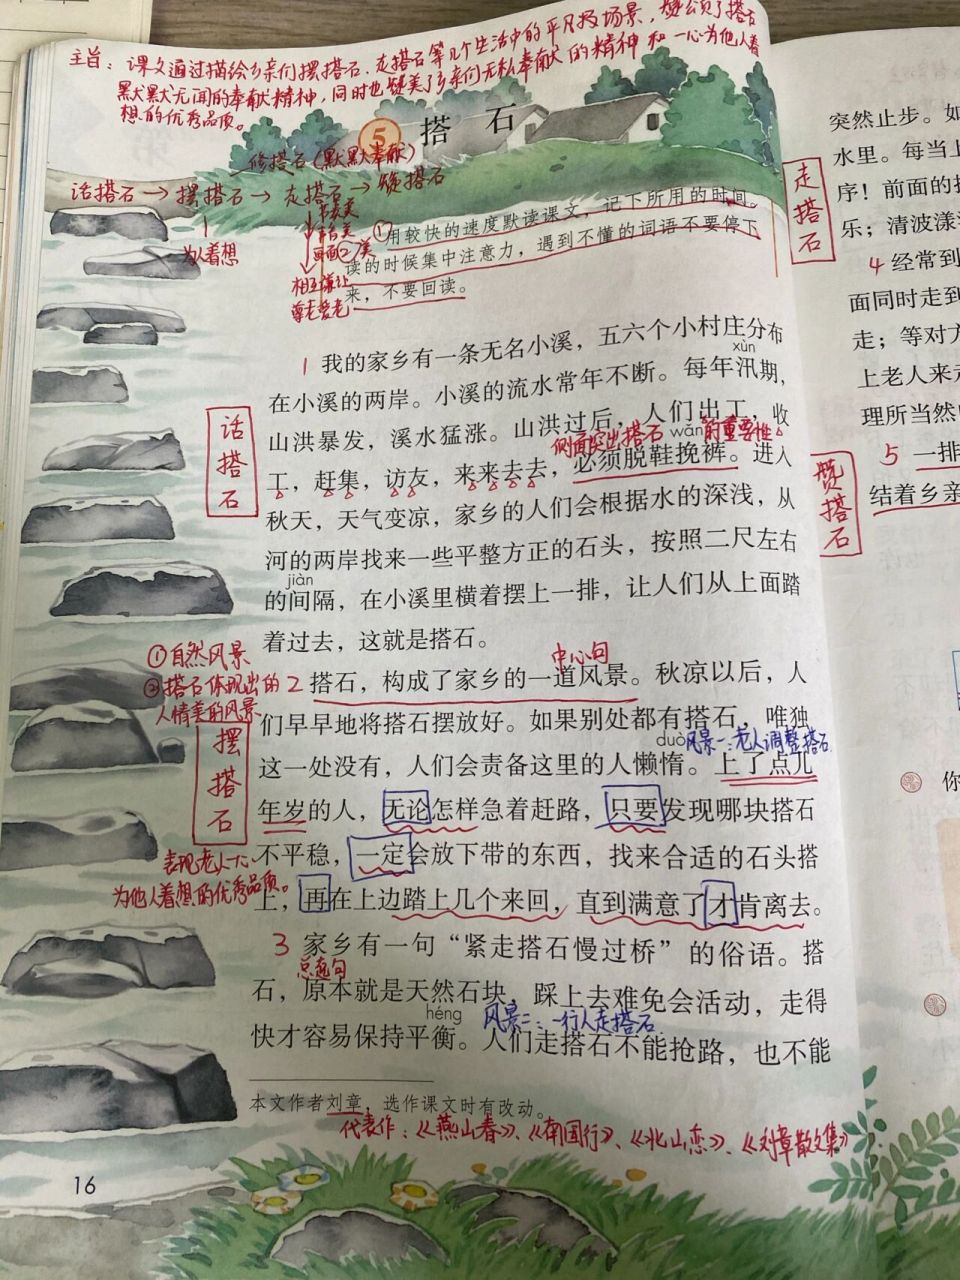 主旨：课文通过描绘乡亲们摆搭石、走搭石等几个生活中的平凡
场景，赞颂了搭石
默默无闻的奉献精神，同时也赞美了乡亲们无私奉献的精神和一心为他人着
想的优秀品质。
5 搭石
修搭石（默默奉献）
话搭石→摆搭石→走搭石→赞搭石
为人着想
画面美
相互谦让
尊老爱老
①用较快的速度默读课文，记下所用的时间。
读的时候集中注意力，遇到不懂的词语不要停下
来，不要回读。
1 我的家乡有一条无名小溪，五六个小村庄分布
xùn
在小溪的两岸。小溪的流水常年不断。每年汛期，
山洪暴发，溪水猛涨。山洪过后，人们出工，收
侧面突出搭石的重要性
wǎn
工，赶集，访友，来来去去，必须脱鞋挽裤。进入
秋天，天气变凉，家乡的人们会根据水的深浅，从
河的两岸找来一些平整方正的石头，按照二尺左右
jiàn
的间隔，在小溪里横着摆上一排，让人们从上面踏
着过去，这就是搭石。
话搭石
中心句
①自然风景
②搭石体现出的
人情美的风景
2 搭石，构成了家乡的一道风景。秋凉以后，人
们早早地将搭石摆放好。如果别处都有搭石，唯独
duò
风景一：老人调整搭石
这一处没有，人们会责备这里的人懒惰。上了点儿
年岁的人，无论怎样急着赶路，只要发现哪块搭石
不平稳，一定会放下带的东西，找来合适的石头搭
上，再在上边踏上几个来回，直到满意了才肯离去。
摆搭石
表现老人一心
为他人着想的优秀品质。
3 家乡有一句“紧走搭石慢过桥”的俗语。搭
总起句
石，原本就是天然石块，踩上去难免会活动，走得
héng
风景二：一行人走搭石
快才容易保持平衡。人们走搭石不能抢路，也不能
本文作者刘章，选作课文时有改动。
代表作：《燕山春》、《南国行》、《北山恋》、《刘章散文集》
16
突然止步。如
水里。每当上
序！前面的
乐；清波漾
走搭石
4 经常到
面同时走到
走；等对方
上老人来走
理所当然
5 一排
结着乡亲
赞搭石
你